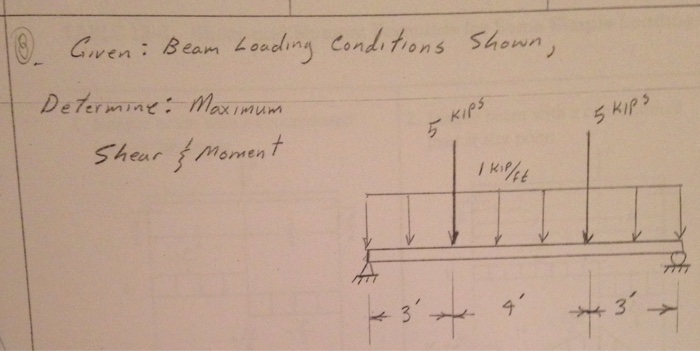 8. Given: Beam Loading Conditions Shown,
Determine: Maximum
Shear & Moment
5 KIPS
5 KIPS
1 KIP/ft
3' 4' 3'